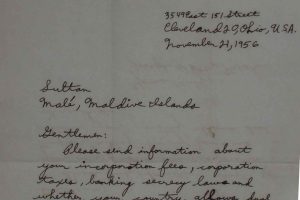 3549 East 151 Street
Cleveland 20, Ohio, U.S.A.
November 21, 1956
Sultan
Malé, Maldive Islands
Gentlemen:
Please send information about
your incorporation fees, corporation
taxes, banking secrecy laws and
whether your country allows